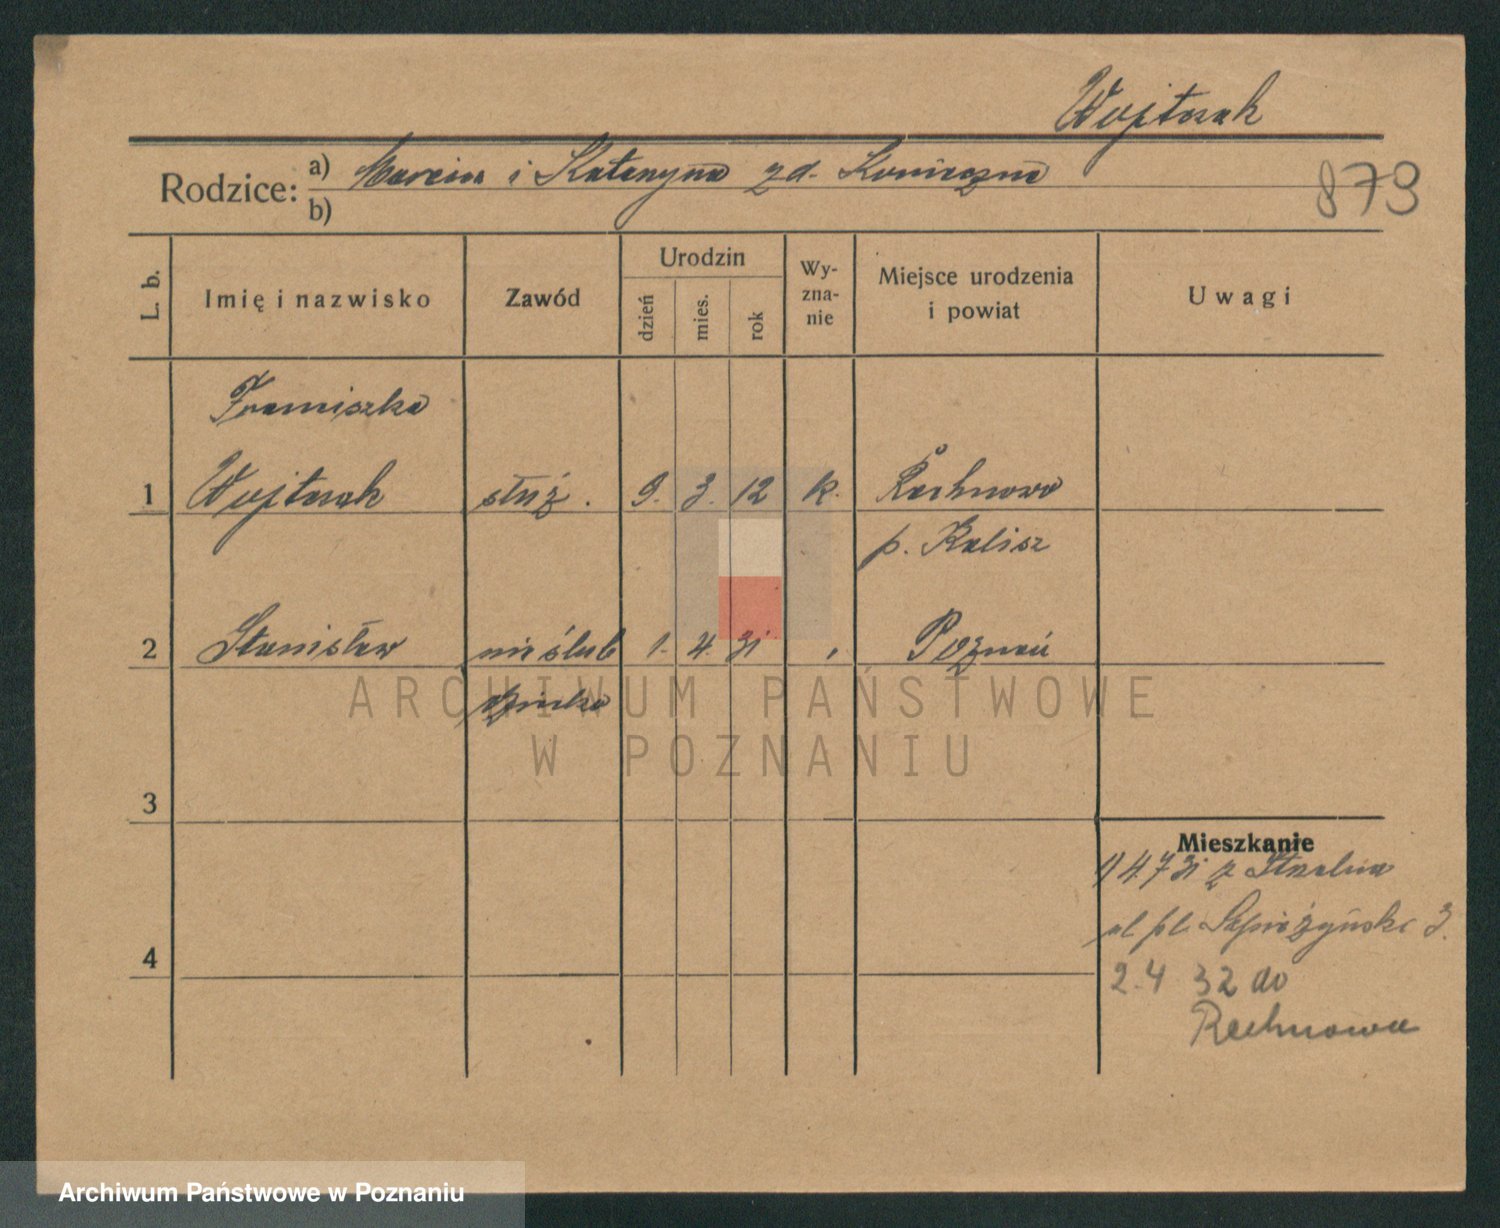 Wojtasak
Rodzice: a) Marcin i Katarzyna zd. Konieczna
b)
873
L. b.
Imię i nazwisko
Zawód
Urodzin
dzień
mies.
rok
Wy-
zna-
nie
Miejsce urodzenia
i powiat
Uwagi
Franciszka
1 Wojtasak służ. 9. 3. 12 k. Rachnowo
p. Kalisz
2 Stanisław nieślub 1. 4. 31 Poznań
dziecko
3
4
Mieszkanie
1) 4 7 31 z
pl. 3.
2.4 32 do
Rachnowa
ARCHIWUM PAŃSTWOWE
W POZNANIU
Archiwum Państwowe w Poznaniu